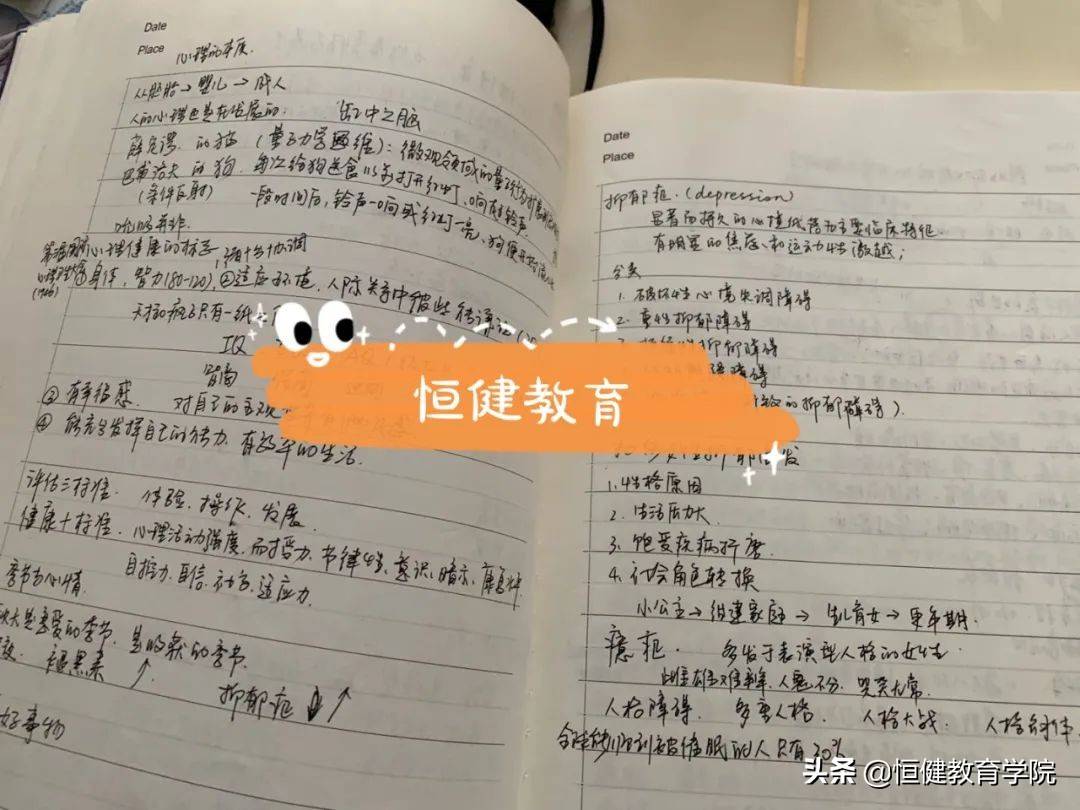 Date
Place 心理的本质.
从胚胎→婴儿→成人
人的心理也是在发展的: 缸中之脑
薛定谔的猫(量子力学思维):微观领域的量子行为扩展
巴甫洛夫的狗.每次给狗送食以前打开红灯、响起铃声
(条件反射) 一段时间后,铃声一响或红灯一亮,狗便开始流
吃吗并非.
第三届国际心理健康的标志
(1946) ①身体,智力(80-120) 十分协调
②适应环境,人际关系中彼此能谦让
天才和疯子只有一纸之
IQ
智商
③有幸福感. 对自己的主观
④能充分发挥自己的能力,有效率的生活.
评估三标准. 体验、操作、发展.
健康十标准.心理活动强度、耐受力、节律性、意识、暗示、康复
自控力、自信、社交、适应力.
季节与心情
秋天是喜爱的季节,是收获的季节.
褪黑素↑ 抑郁症↓↑
好事物
Date
Place
抑郁症.(depression)
显著而持久的心境低落为主要临床特征.
有明显的焦虑和运动性激越;
分类
1.破坏性心境失调障碍
2.重性抑郁障碍
抑郁障碍
障碍
的抑郁障碍).
发
1.性格原因
2.生活压力大
3.饱受疾病折磨
4.社会角色转换
小公主→组建家庭→生儿育女→更年期.
癔症. 多发于表演型人格的女性.
此雌雄难辨、人鬼不分、哭笑无常.
人格障碍. 多重人格. 人格大战. 人格
被催眠的人只有30%
恒健教育
头条 @恒健教育学院